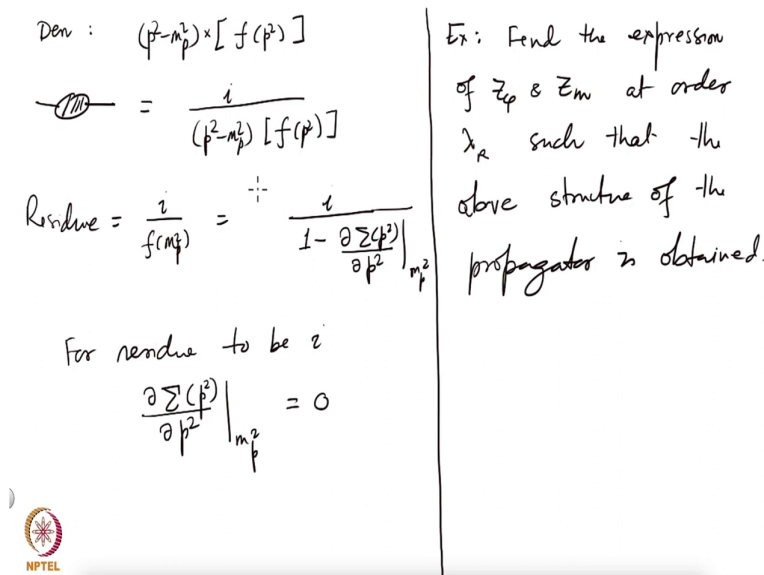 Den : (p²-m_p²) × [ f(p²) ]
= i / ((p²-m_p²) [f(p²)])
Residue = i / f(m_p²) = i / (1 - ∂Σ(p²)/∂p² |_{m_p²})
For residue to be i
∂Σ(p²)/∂p² |_{m_p²} = 0
Ex: Find the expression
of Z_φ & Z_m at order
λ_R such that the
above structure of the
propagator is obtained.
NPTEL